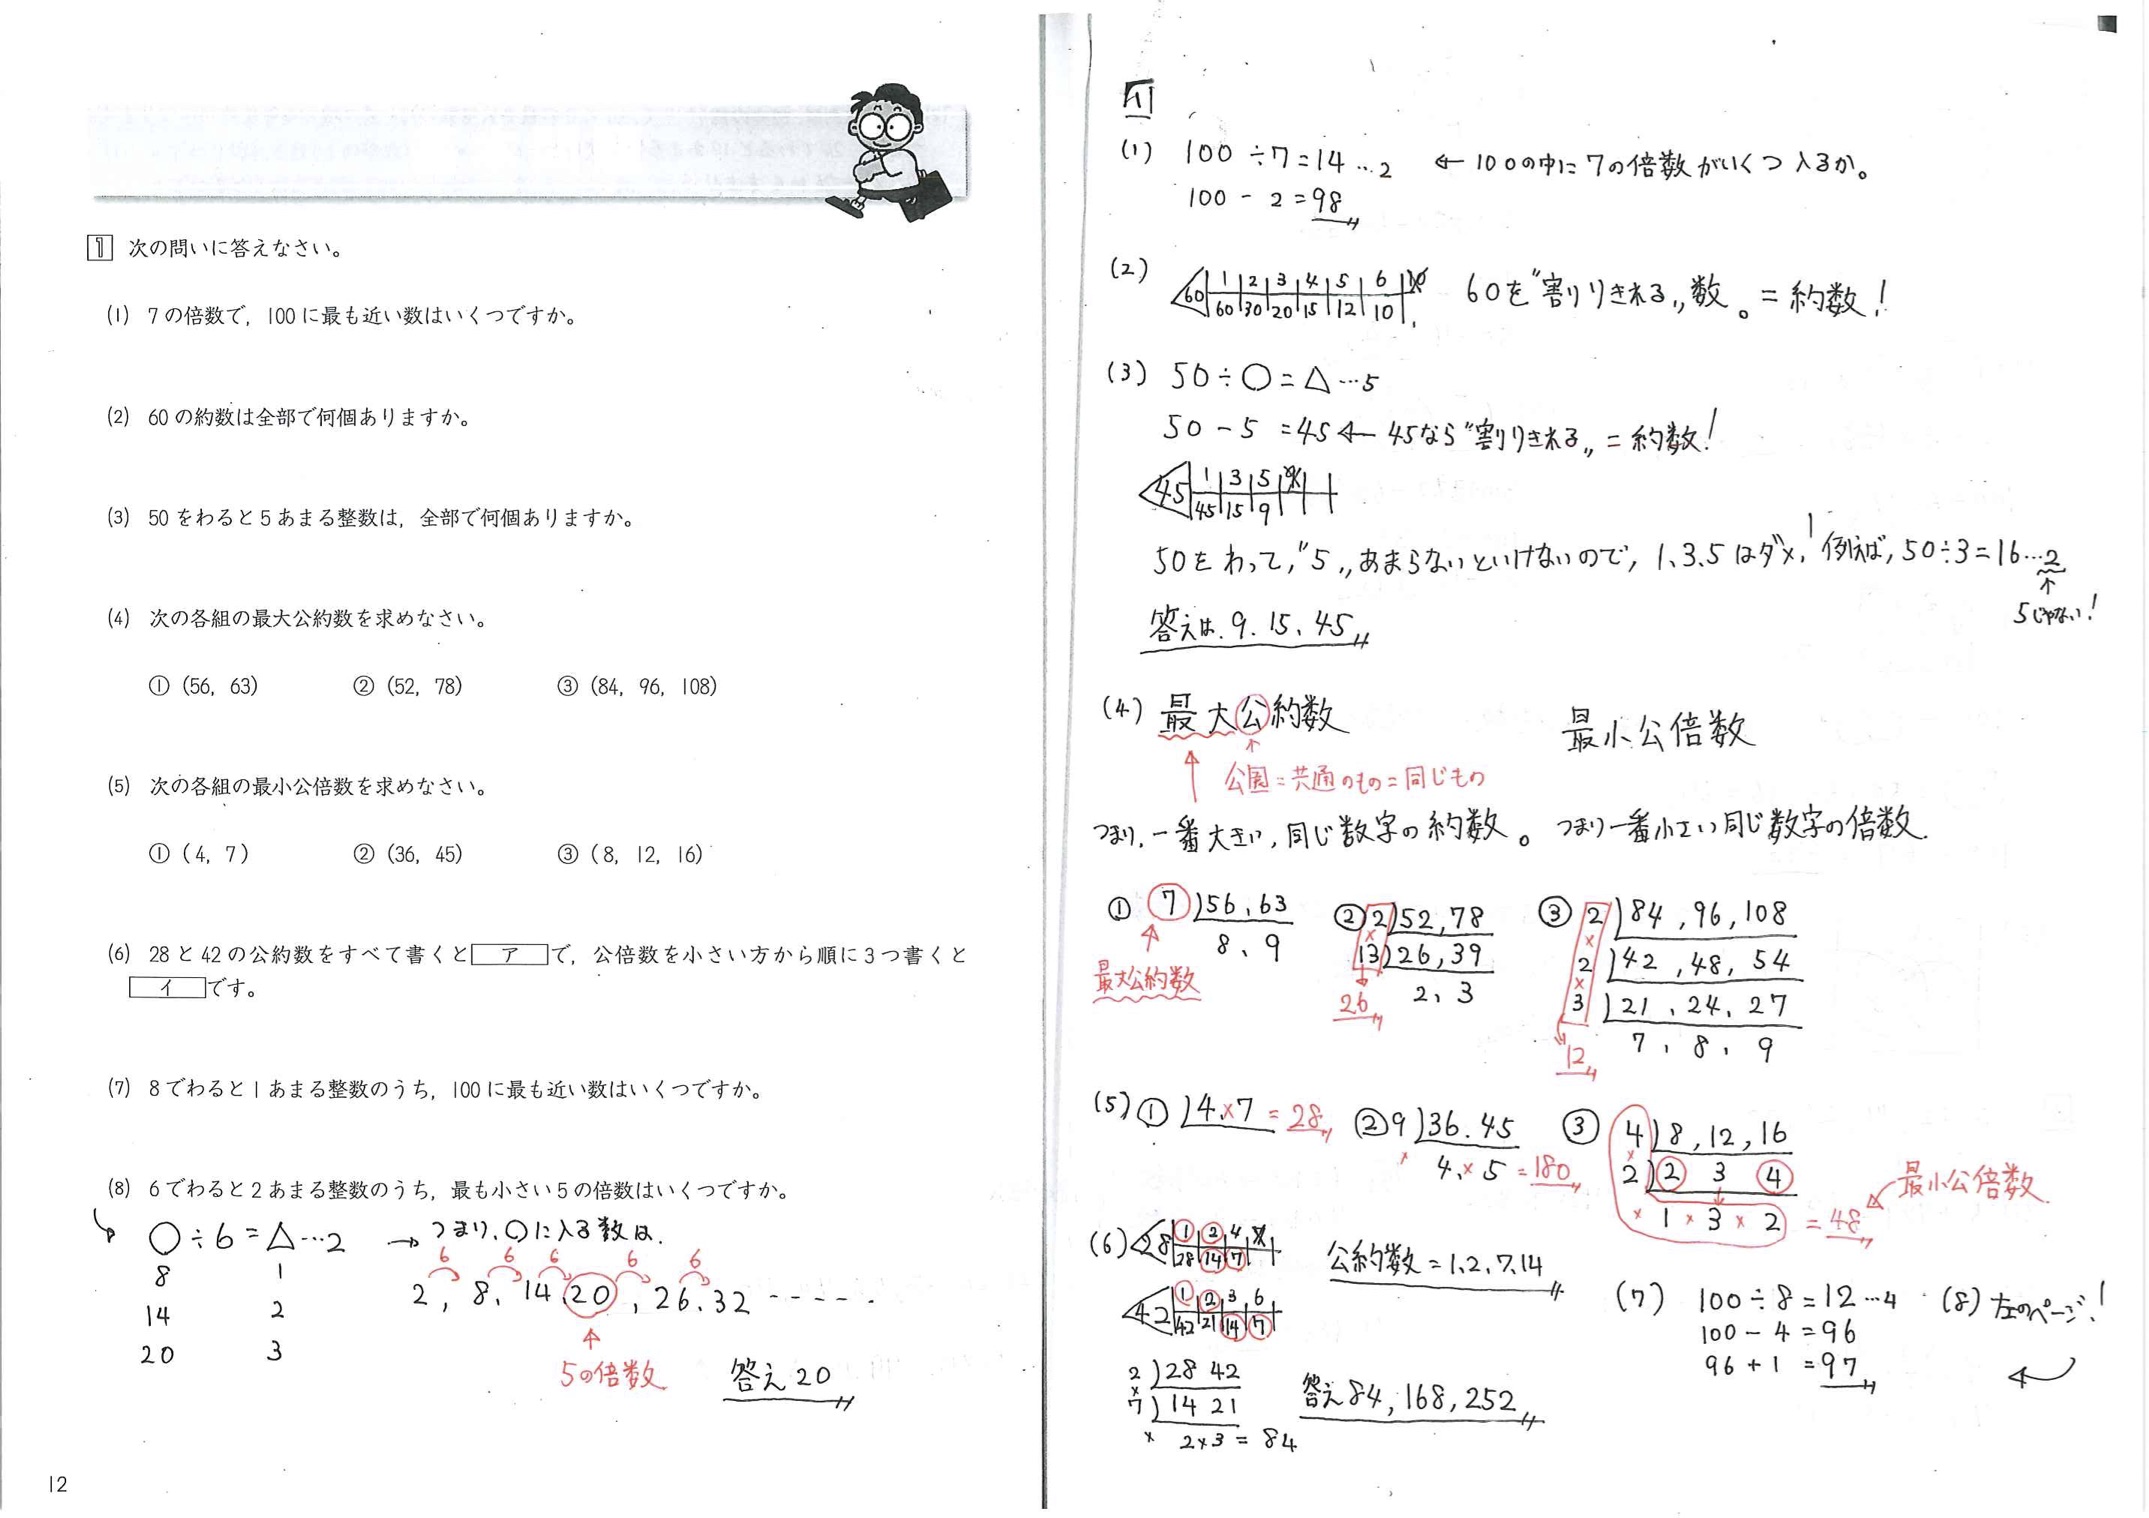 1 次の問いに答えなさい。
(1) 7の倍数で，100に最も近い数はいくつですか。
(2) 60の約数は全部で何個ありますか。
(3) 50をわると5あまる整数は，全部で何個ありますか。
(4) 次の各組の最大公約数を求めなさい。
① (56, 63) ② (52, 78) ③ (84, 96, 108)
(5) 次の各組の最小公倍数を求めなさい。
① (4, 7) ② (36, 45) ③ (8, 12, 16)
(6) 28と42の公約数をすべて書くと ア で，公倍数を小さい方から順に3つ書くと
イ です。
(7) 8でわると1あまる整数のうち，100に最も近い数はいくつですか。
(8) 6でわると2あまる整数のうち，最も小さい5の倍数はいくつですか。
○÷6=△…2 → つまり、○に入る数は、
8 1
14 2
20 3
6 6 6 6 6
2, 8, 14, 20, 26, 32 -----.
5の倍数
答え 20
12
1
(1) 100÷7=14…2 ← 100の中に7の倍数がいくつ入るか。
100-2=98
(2) 60 1 2 3 4 5 6 10
60 30 20 15 12 10
60を"割りきれる"数。=約数!
(3) 50÷○=△…5
50-5=45 ← 45なら"割りきれる"=約数!
45 1 3 5 9
45 15 9
50をわって,"5"あまらないといけないので, 1、3、5はダメ! 例えば, 50÷3=16…2
↑
5じゃない!
答えは、9、15、45
(4) 最大公約数 最小公倍数
公園=共通のもの=同じもの
つまり、一番大きい,同じ数字の約数。 つまり一番小さい同じ数字の倍数.
① 7)56、63
8、9
最大公約数
② 2)52,78
13)26,39
2、3
26
③ 2)84,96,108
2)42,48,54
3)21、24、27
7、8、9
12
(5) ① )4×7=28
② 9)36、45
× 4×5=180
③ 4)8,12,16
2)2 3 4
×1×3×2=48 ← 最小公倍数
(6) 28 1 2 4 7
28 14 7
公約数=1、2、7、14
42 1 2 3 6
42 21 14 7
2)28 42
×
7)14 21
× 2×3=84
答え 84,168,252
(7) 100÷8=12…4
100-4=96
96+1=97
(8) 左のページ!
←